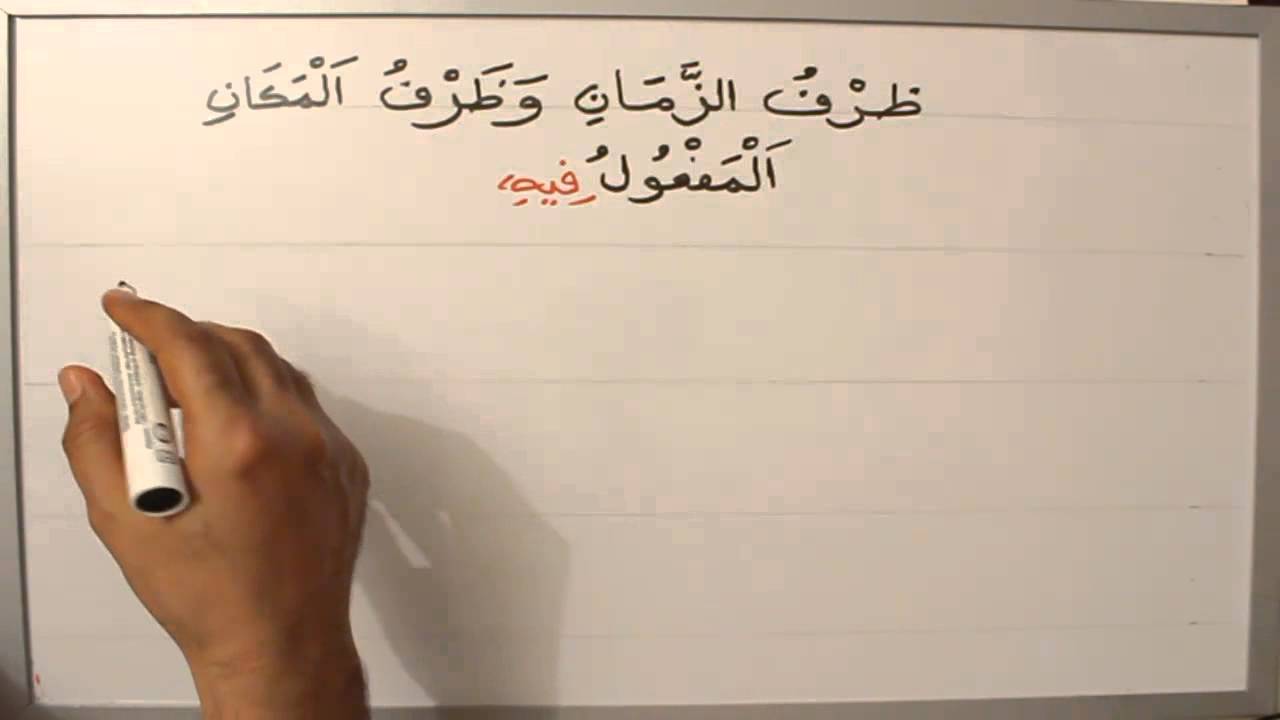 ظرْفُ الزَّمَانِ وَظَرْفُ اَلْمَكَانِ
اَلْمَفْعُولُ فِيهِ